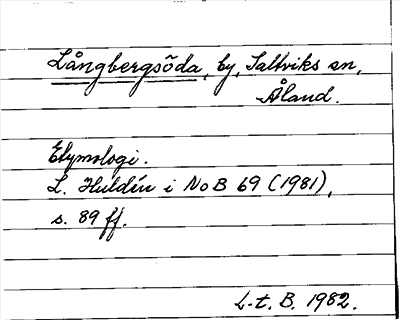 Långbergsöda, by, Saltviks sn,
Åland.
Etymologi.
L. Huldén i NoB 69 (1981),
s. 89 ff.
L-t. B. 1982.